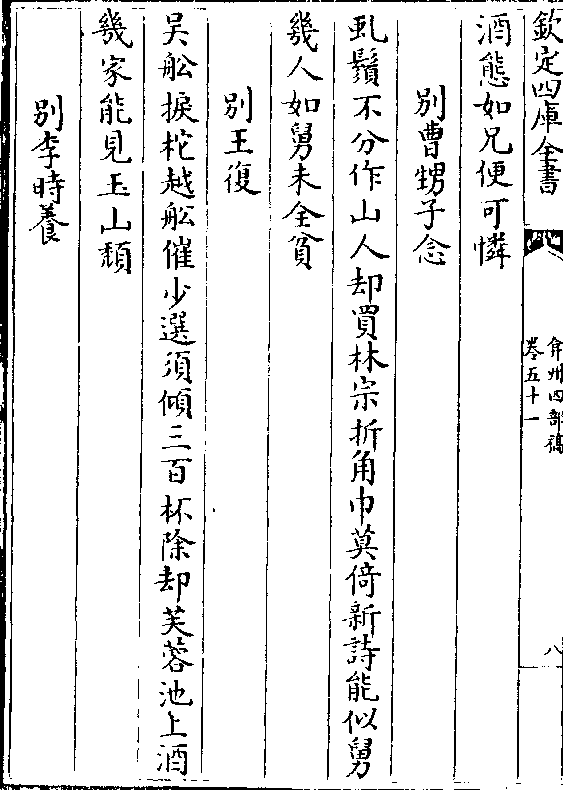 欽定四庫全書
弇州四部稿
卷五十一
八
酒態如兄便可憐
別曹甥子念
虬鬚不分作山人却買林宗折角巾莫倚新詩能似舅
幾人如舅未全貧
別王復
吴舩捩柁越舩催少選須傾三百杯除却芙蓉池上酒
幾家能見玉山頹
別李時養